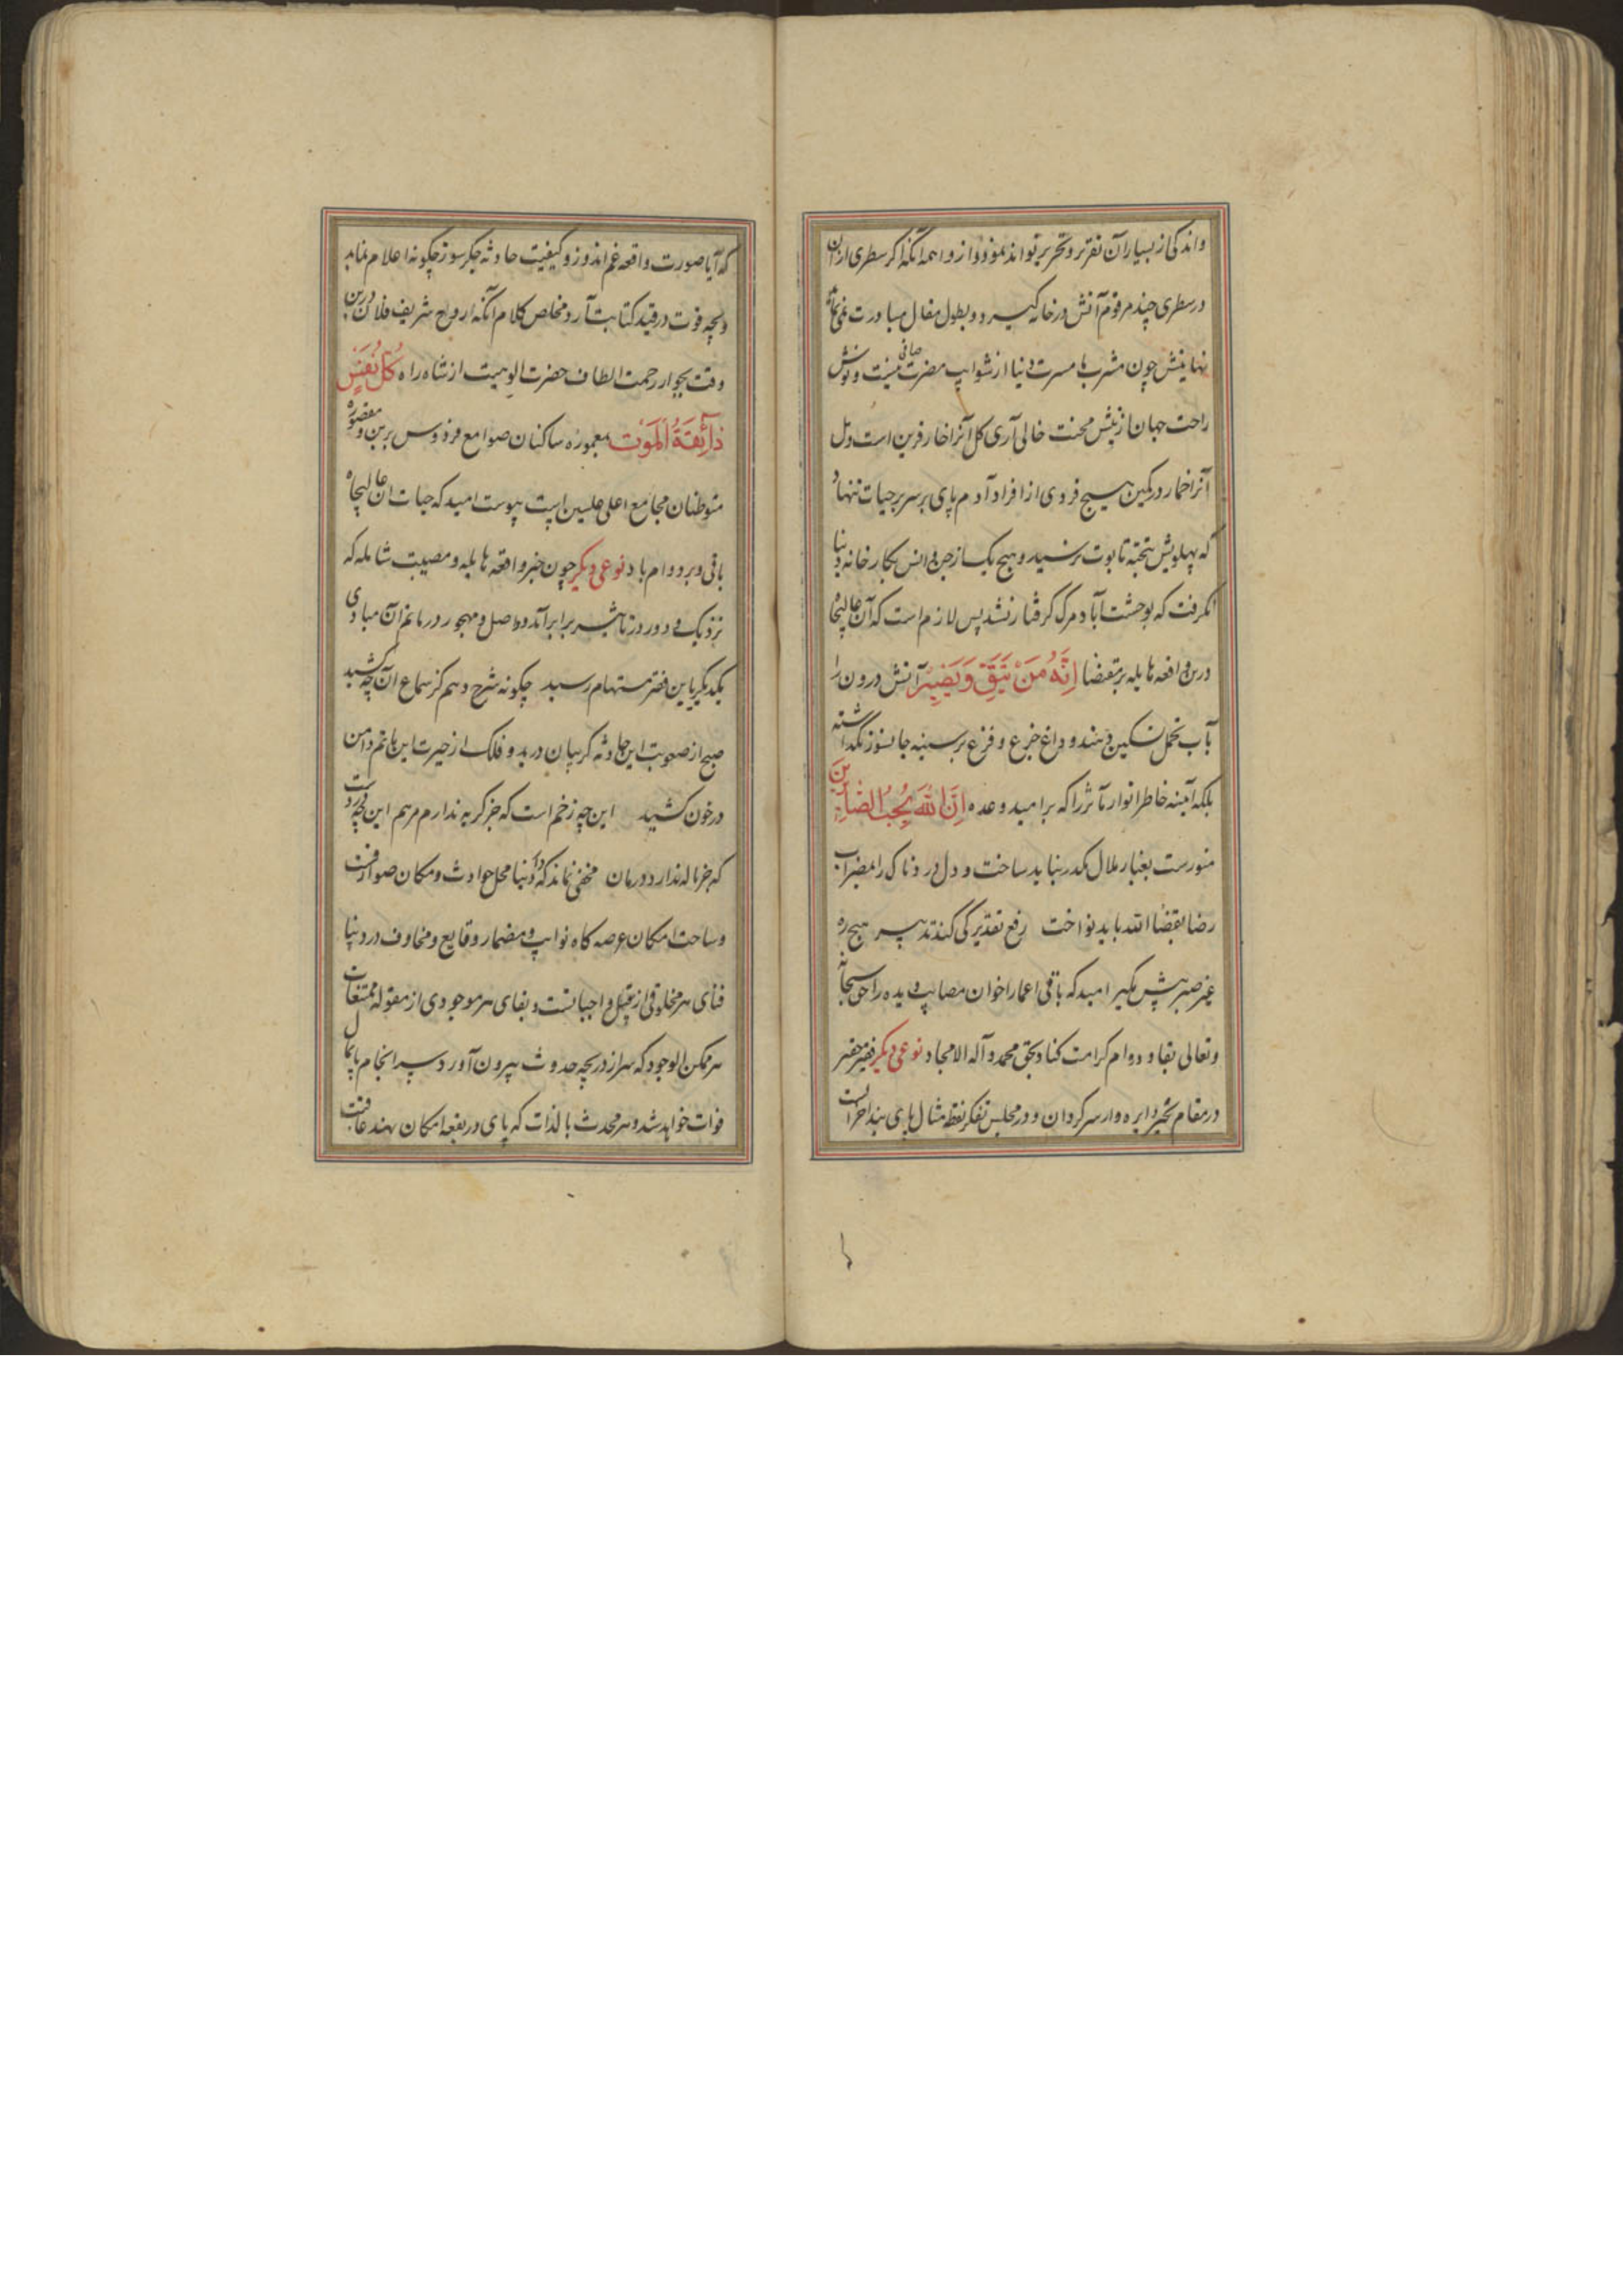 واندکی از بسیار آن تقریر و تحریر تواند نمود و از واهمه آنکه اگر سطری از آن
در سطری چند مرقوم آتش در خانه گیرد و بطول مقال مبادرت نمی‌نماید
نهایتش چون مشرب ما مسرت دنیا از شوایب مضرت صافی نیست و نوش
راحت جهان از نیش محنت خالی آری گل آنرا خار قرین است و مل
آنرا خمار در کمین هیچ فردی از افراد آدم پای بر سریر حیات ننهاد
که پهلویش بتخته تابوت نرسید و هیچ یک از جن و انس بکارخانه دنیا
نگرفت که بوحشت آباد مرگ گرفتار نشد پس لازم است که آن عالیجاه
درین واقعه هایله بر مقتضا اِنَّهُ مَنْ یَتَّقِ وَیَصْبِرْ آتش درون را
بآب تحمل تسکین دهند و داغ جزع و فزع بر سینه جانسوز نگذاشته
بلکه آیینه خاطر انوار مآثر را که بر امید وعده اِنَّ اللهَ یُحِبُّ الصَّابِرِینَ
منورست بغبار ملال مکدر نباید ساخت و دل دردناک را بمضراب
رضا بقضا الله باید نواخت رفع تقدیر کی کند تدبیر هیچ ره
غیر صبر پیش مگیر امید که باقی اعمار اخوان مصایب دیده را حق سبحانه
وتعالی بقا و دوام کرامت کناد بحق محمد و آله الامجاد نوعی دیگر فقیر حقیر
در مقام تحیر دایره وار سرگردان و در مجلس تفکر نقطه مثال پای بند احزانست
که آیا صورت واقعه غم اندوز و کیفیت حادثه جگرسوز چگونه اعلام نماید
وبچه قوت در قید کتابت آرد مخلص کلام آنکه ارواح شریف فلان درین
وقت بجوار رحمت الطاف حضرت الوهیت از شاه راه کُلُّ نَفْسٍ
ذَائِقَةُ الْمَوْتِ بمعموره ساکنان صوامع فردوس برین و مقصوره
متوطنان مجامع اعلی علیین پیوست امید که حیات آن عالیجاه
باقی و بر دوام باد نوعی دیگر چون خبر واقعه هایله و مصیبت شامله که
نزدیک و دور در تأثیر برابر آمد و واصل و مهجور در ماتم آن مبادی
یکدیگر باین فقیر مستهام رسید چگونه شرح دهم کز سماع آن چه کشید
صبح از صعوبت این حادثه گریبان درید و فلک از حیرت این ماتم دامن
در خون کشید این چه زخم است که جز گریه ندارم مرهم این چه دردیست
که جز ناله ندارد درمان مخفی نماند که دار دنیا محل حوادث و مکان صوارفست
وساحت امکان عرصه گاه نوایب و مضمار وقایع و مخاوف در دنیا
فنای هر مخلوقی از قبیل واجباتست و بقای هر موجودی از مقوله ممتنعات
هر ممکن الوجود که سر از دریچه حدوث بیرون آورد سرانجام پایمال
فوات خواهد شد و هر محدث بالذات که پای در بقعه امکان نهند عاقبت